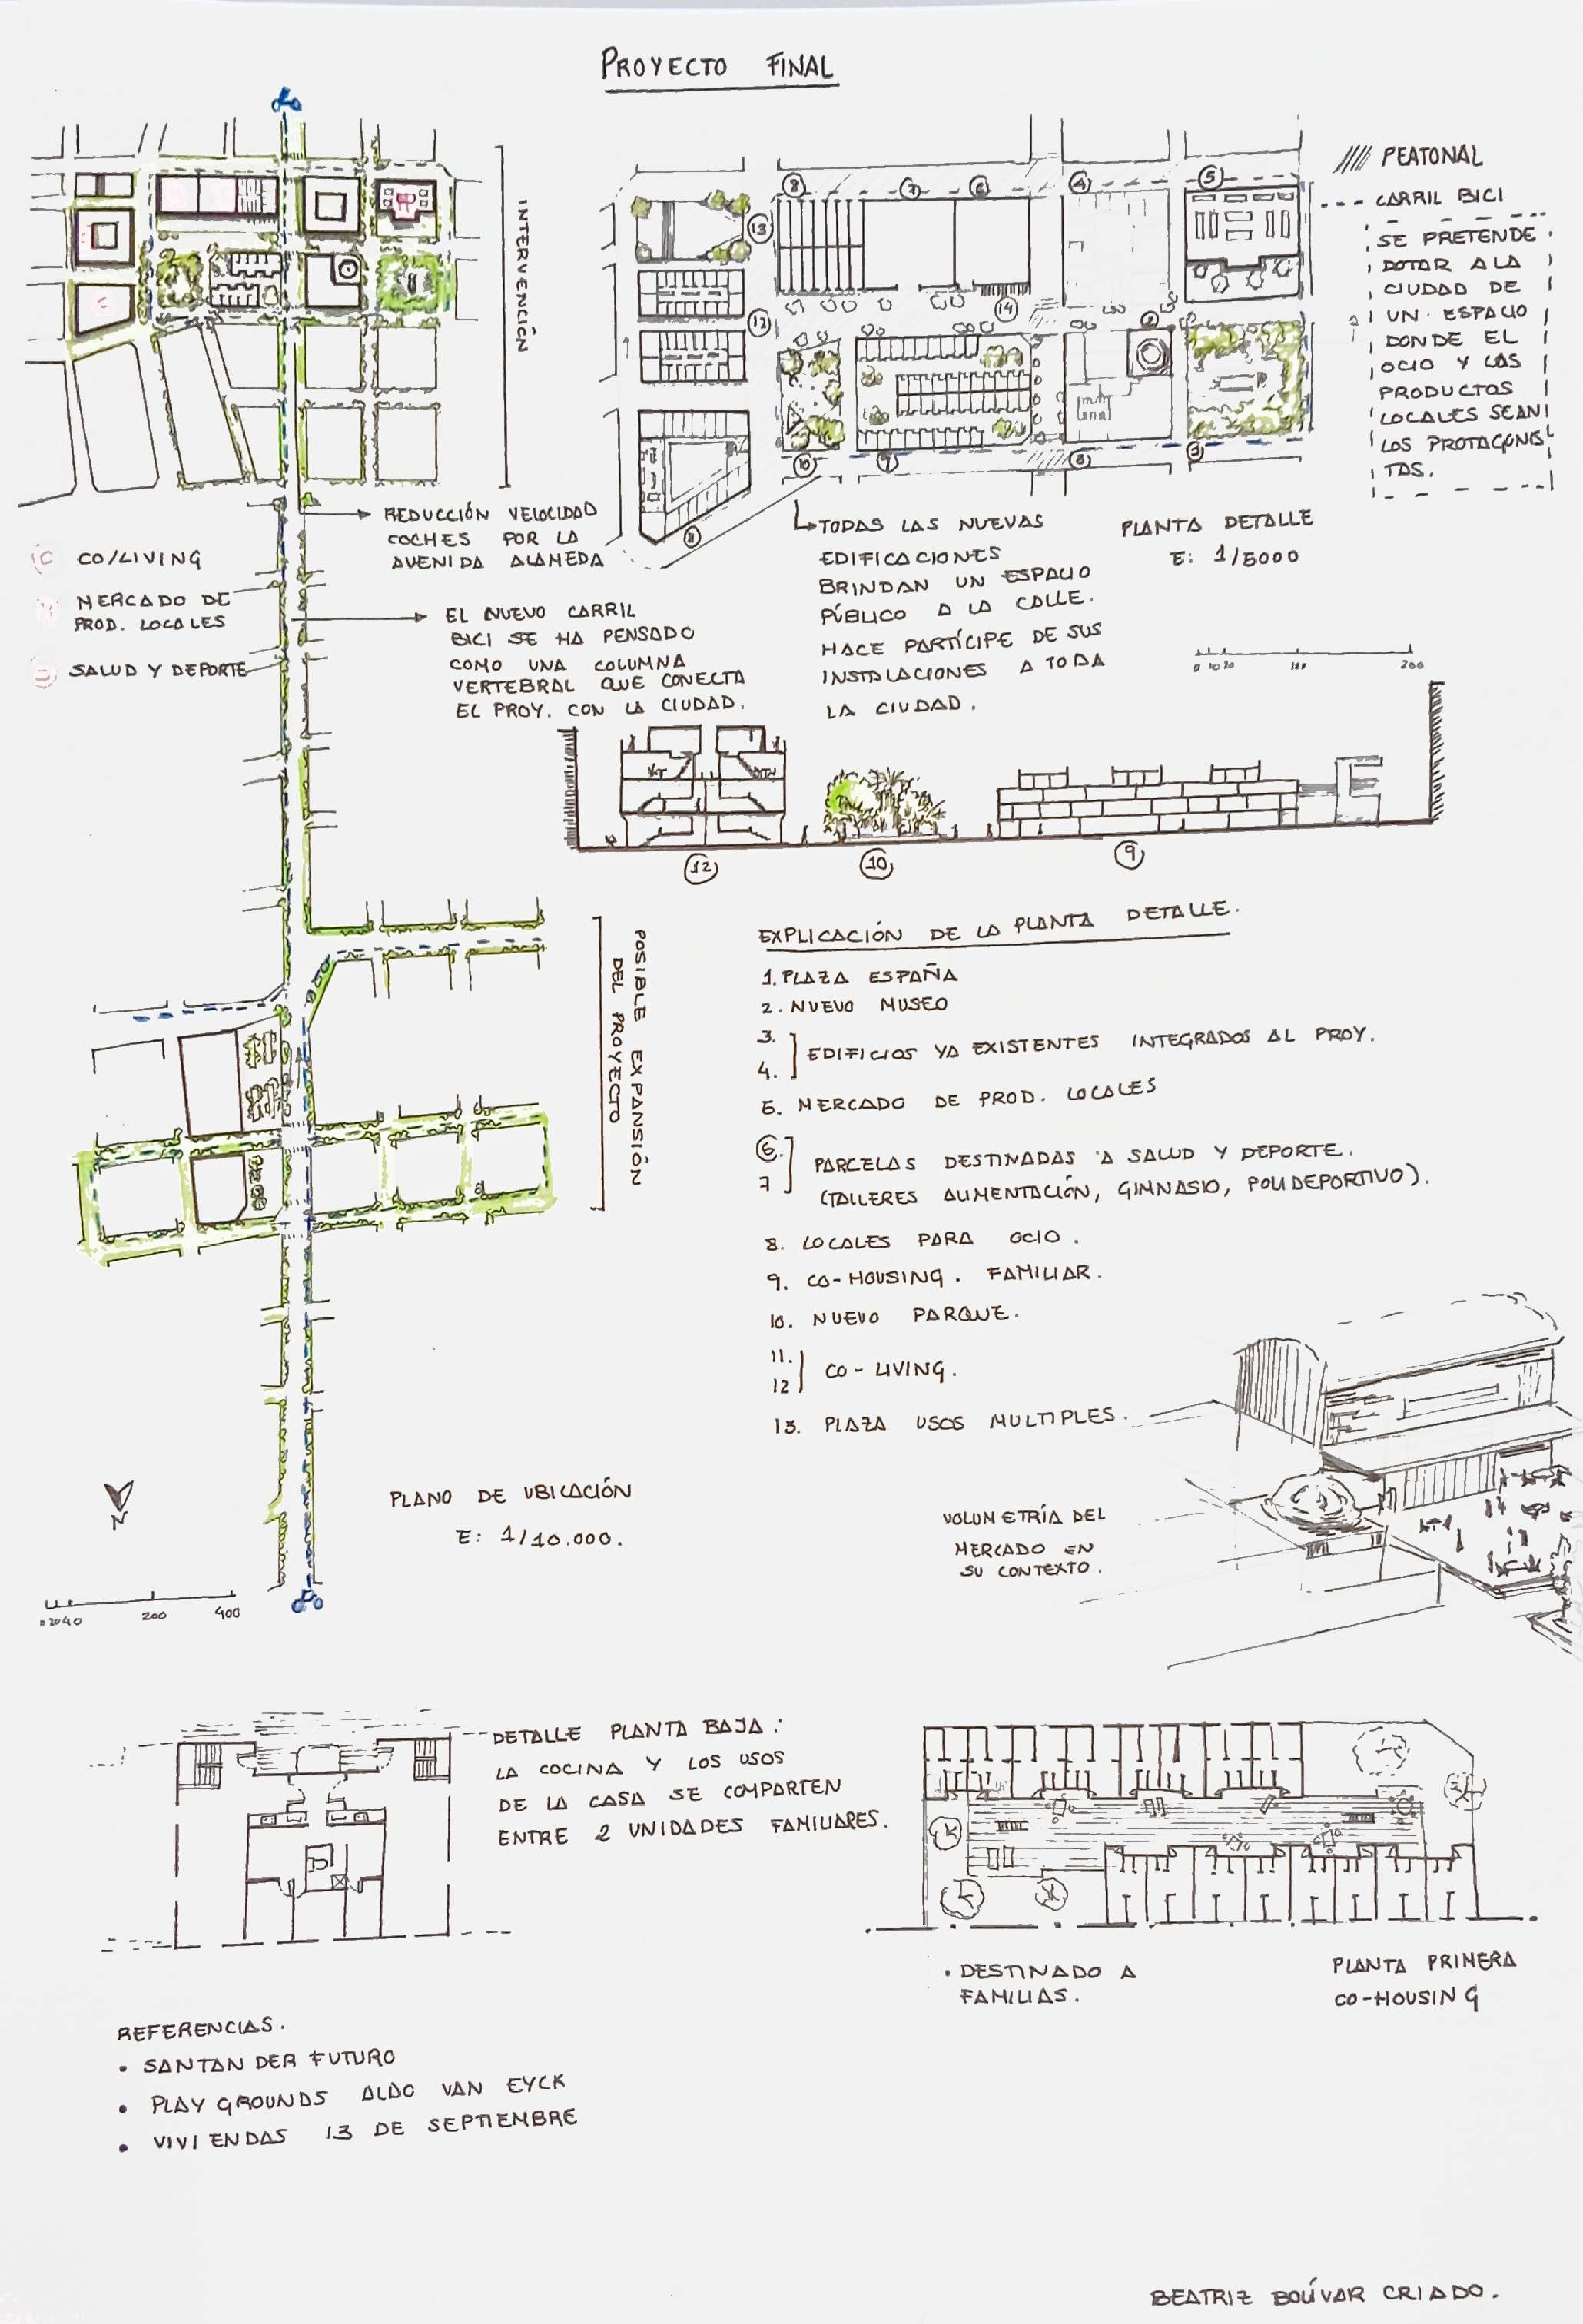 PROYECTO FINAL
INTERVENCIÓN
REDUCCIÓN VELOCIDAD
COCHES POR LA
AVENIDA ALAMEDA
C CO/LIVING
M MERCADO DE
PROD. LOCALES
S SALUD Y DEPORTE
EL NUEVO CARRIL
BICI SE HA PENSADO
COMO UNA COLUMNA
VERTEBRAL QUE CONECTA
EL PROY. CON LA CIUDAD.
8 7 6 4 5
13
12
14
2
10 9 3 1
11
PEATONAL
CARRIL BICI
SE PRETENDE
DOTAR A LA
CIUDAD DE
UN ESPACIO
DONDE EL
OCIO Y LAS
PRODUCTOS
LOCALES SEAN
LOS PROTAGONIS
TAS.
TODAS LAS NUEVAS
EDIFICACIONES
BRINDAN UN ESPACIO
PÚBLICO A LA CALLE.
HACE PARTÍCIPE DE SUS
INSTALACIONES A TODA
LA CIUDAD.
PLANTA DETALLE
E: 1/5000
0 10 20 100 200
12 10 9
POSIBLE EXPANSIÓN
DEL PROYECTO
EXPLICACIÓN DE LA PLANTA DETALLE.
1. PLAZA ESPAÑA
2. NUEVO MUSEO
3.
4. EDIFICIOS YA EXISTENTES INTEGRADOS AL PROY.
5. MERCADO DE PROD. LOCALES
6.
7 PARCELAS DESTINADAS A SALUD Y DEPORTE.
(TALLERES ALIMENTACIÓN, GIMNASIO, POLIDEPORTIVO).
8. LOCALES PARA OCIO.
9. CO-HOUSING. FAMILIAR.
10. NUEVO PARQUE.
11.
12 CO-LIVING.
13. PLAZA USOS MULTIPLES.
N
PLANO DE UBICACIÓN
E: 1/10.000.
0 20 40 200 400
VOLUMETRÍA DEL
MERCADO EN
SU CONTEXTO.
DETALLE PLANTA BAJA:
LA COCINA Y LOS USOS
DE LA CASA SE COMPARTEN
ENTRE 2 UNIDADES FAMILIARES.
• DESTINADO A
FAMILIAS.
PLANTA PRIMERA
CO-HOUSING
REFERENCIAS.
• SANTANDER FUTURO
• PLAY GROUNDS ALDO VAN EYCK
• VIVIENDAS 13 DE SEPTIEMBRE
BEATRIZ BOLÍVAR CRIADO.